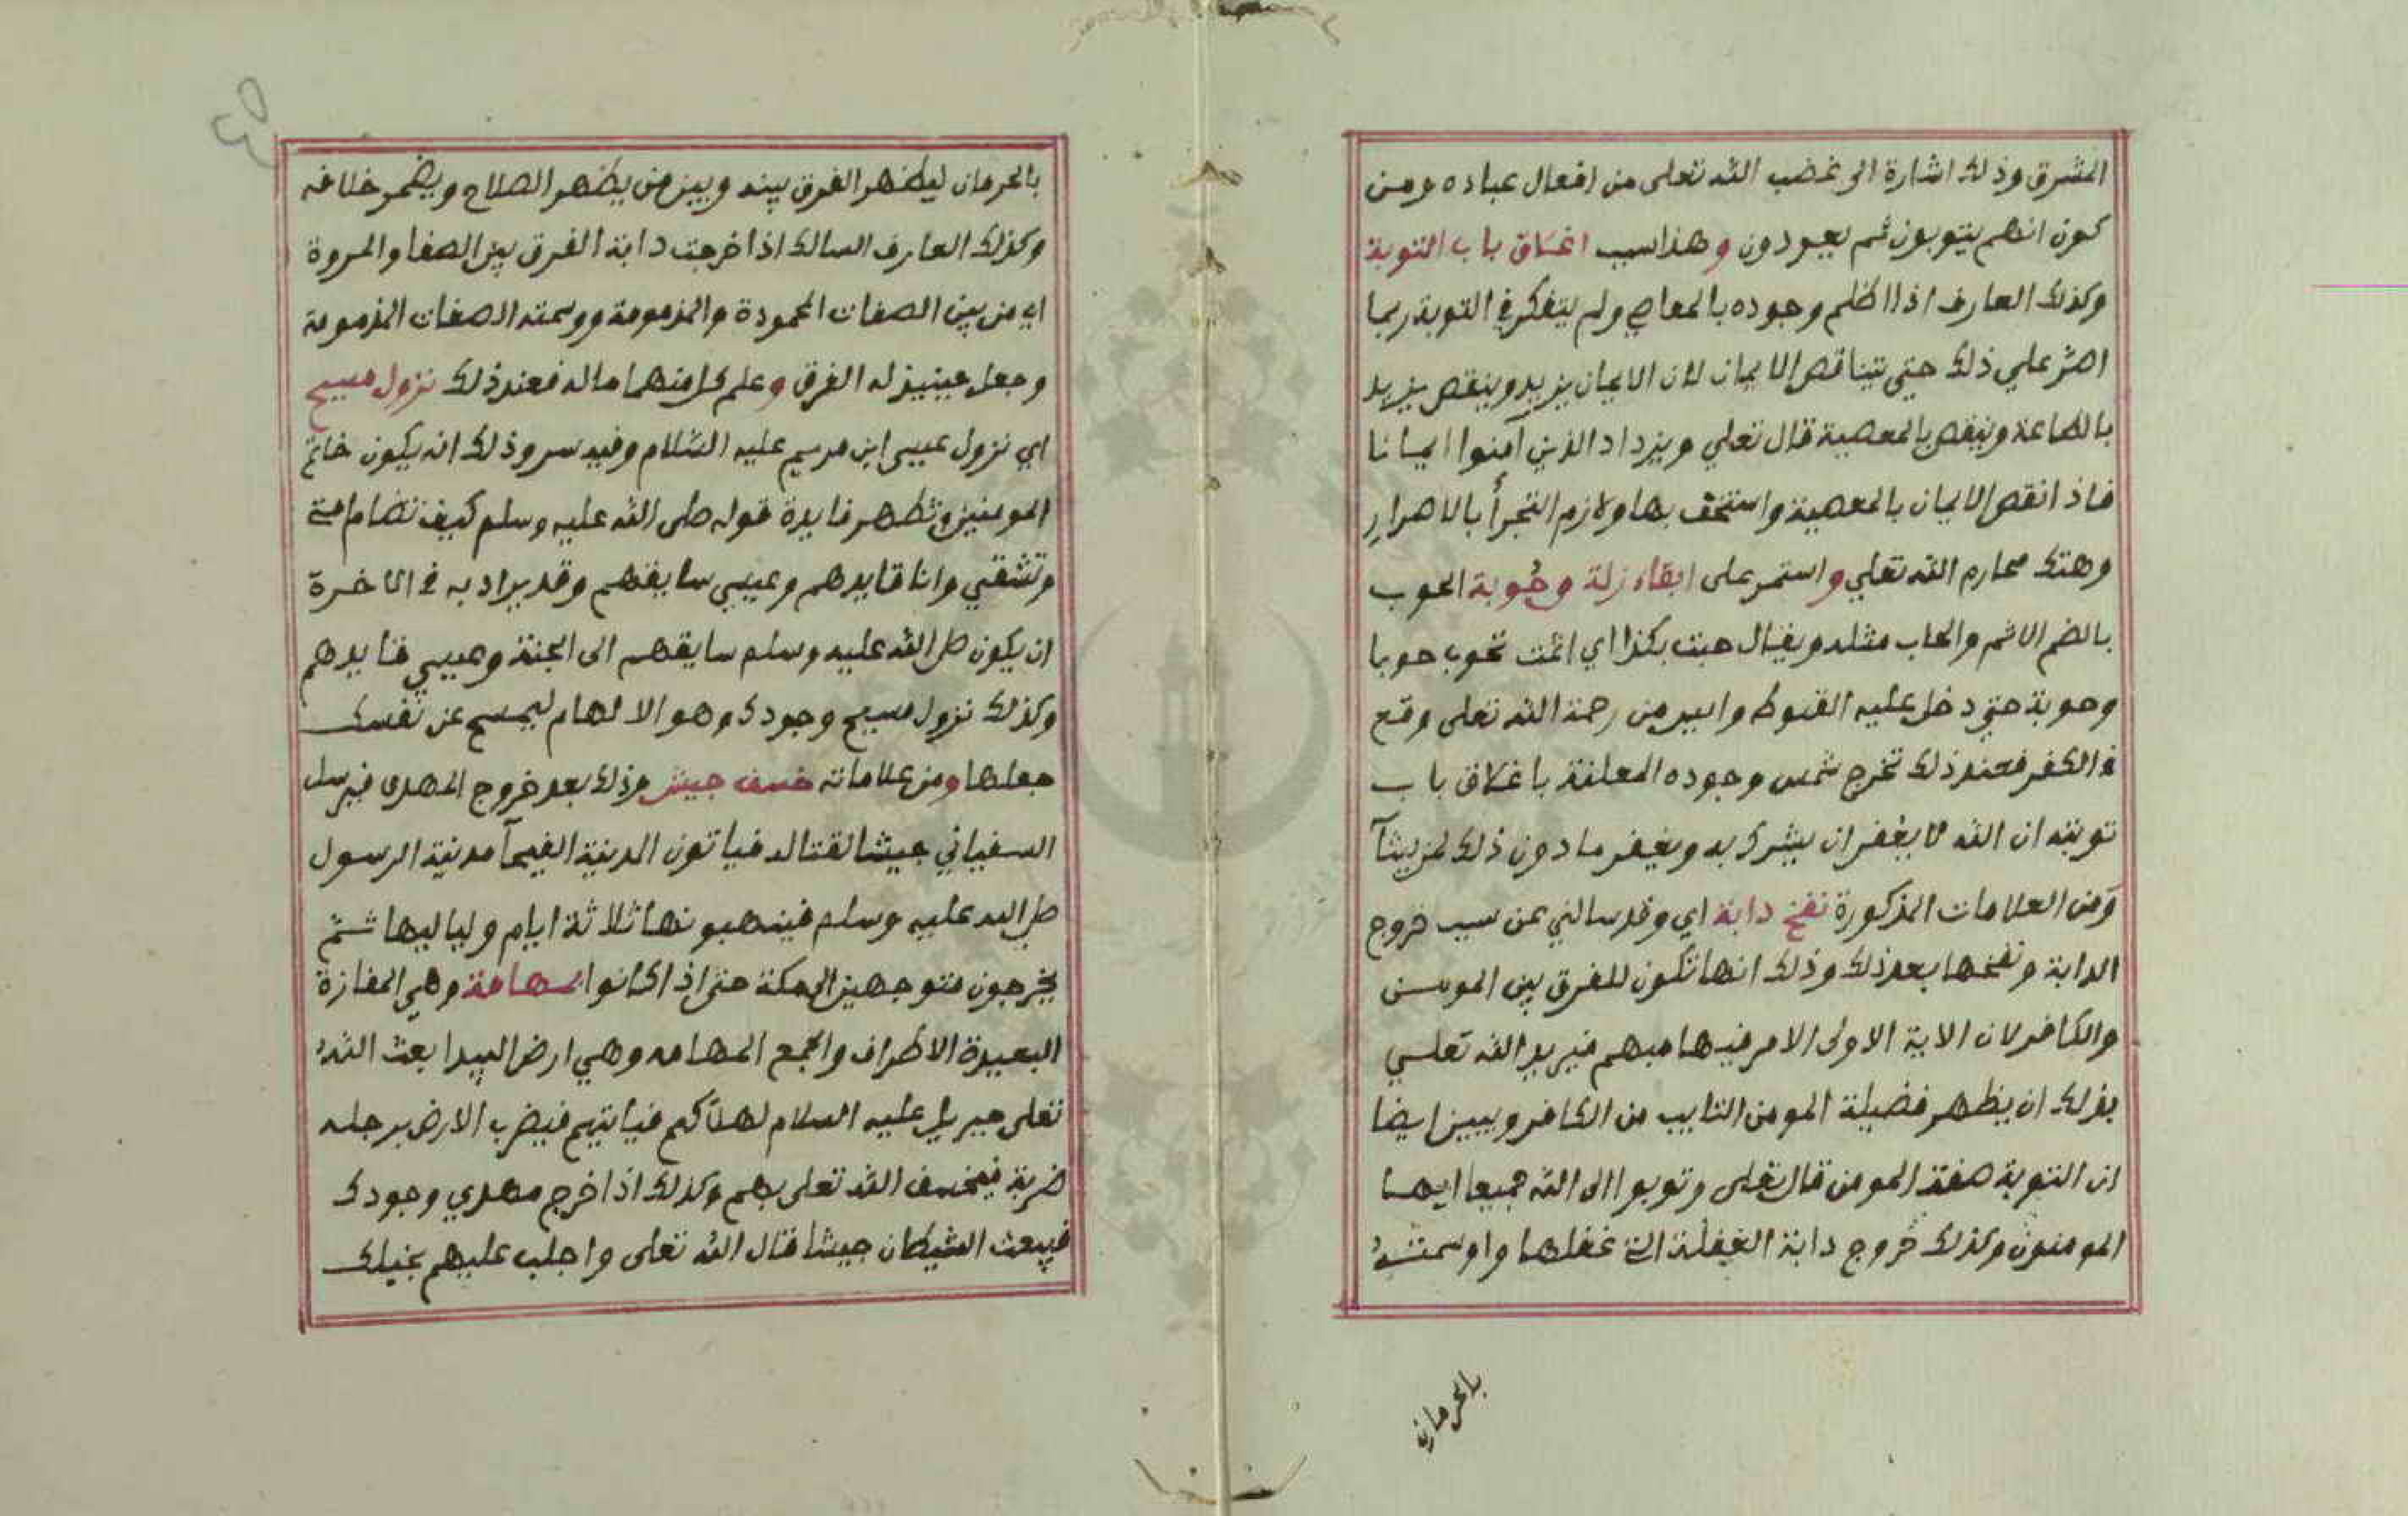 المشرق وذلك اشارة الى غضب الله تعلى من افعال عباده ومن
كون انهم يتوبون ثم يعودون وهذا سبب اغلاق باب التوبة
وكذلك العارف اذا اظلم وجوده بالمعاصي ولم يتفكر في التوبة ربما
اصر علي ذلك حتي يتناقص الايمان لان الايمان يزيد وينقص يزيد
بالطاعة وينقص بالمعصية قال تعلي ويزداد الذين آمنوا ايمانا
فاذا نقص الايمان بالمعصية واستخف بها ولازم التجرأ بالاصرار
وهتك محارم الله تعلي واستمر على ابقاء زلة وحُوبة الحوب
بالضم الاثم والحاب مثله ويقال حبت بكذا اي اثمت تحوب حوبا
وحوبة حتي دخل عليه القنوط وايس من رحمة الله تعلى وقع
في الكفر فعند ذلك تخرج شمس وجوده المعلنة باغلاق باب
توبته ان الله لا يغفر ان يشرك به ويغفر ما دون ذلك لمن يشآ
ومن العلامات المذكورة نفخ دابة اي وقد سالني عن سبب خروج
الدابة ونفخها بعد ذلك وذلك انها تكون للفرق بين المومن
والكافر لان الاية الاولى الامر فيها مبهم فيريد الله تعلي
بذلك ان يظهر فضيلة المومن التايب من الكافر ويبين ايضا
ان التوبة صفة المومن قال تعلى وتوبوا الى الله جميعا ايها
المومنون وكذلك خروج دابة الغفلة التي غفلها واوسمته
بالحرمان
بالحرمان ليظهر الفرق بينه وبين من يظهر الصلاح ويضمر خلافه
وكذلك العارف السالك اذا خرجت دابة الفرق بين الصفا والمروة
اي من بين الصفات المحمودة والمذمومة ووسمته الصفات المذمومة
وجعل حينيذ له الفرق وعلم كل منهما ماله فعند ذلك نزول مسيح
اي نزول عيسى ابن مريم عليه السّلام وفيه سر وذلك انه يكون خاتم
المومنين وتظهر فايدة قوله صلى الله عليه وسلم كيف تضام امتي
وتشقي وانا قايدهم وعيسي سايقهم وقد يراد به في الاخرة
ان يكون صلى الله عليه وسلم سايقهم الى الجنة وعيسي قايدهم
وكذلك نزول مسيح وجودك وهو الالهام ليمسح عن نفسك
جهلها ومن علاماته خسف جيش وذلك بعد خروج المهدى فيرسل
السفياني جيشا لقتاله فياتون المدينة الفيحآ مدينة الرسول
صلى الله عليه وسلم فينهبونها ثلاثة ايام ولياليها ثم
يخرجون متوجهين الى مكة حتى اذا كانوا بمهامة وهي المفازة
البعيدة الاطراف والجمع المهامه وهي ارض البيدا بعث الله
تعلى جبريل عليه السلام لهلاكهم فياتيهم فيضرب الارض برجله
ضربة فيخسف الله تعلى بهم وكذلك اذا خرج مهدي وجودك
فيبعث الشيطان جيشا قال الله تعلى واجلب عليهم بخيلك